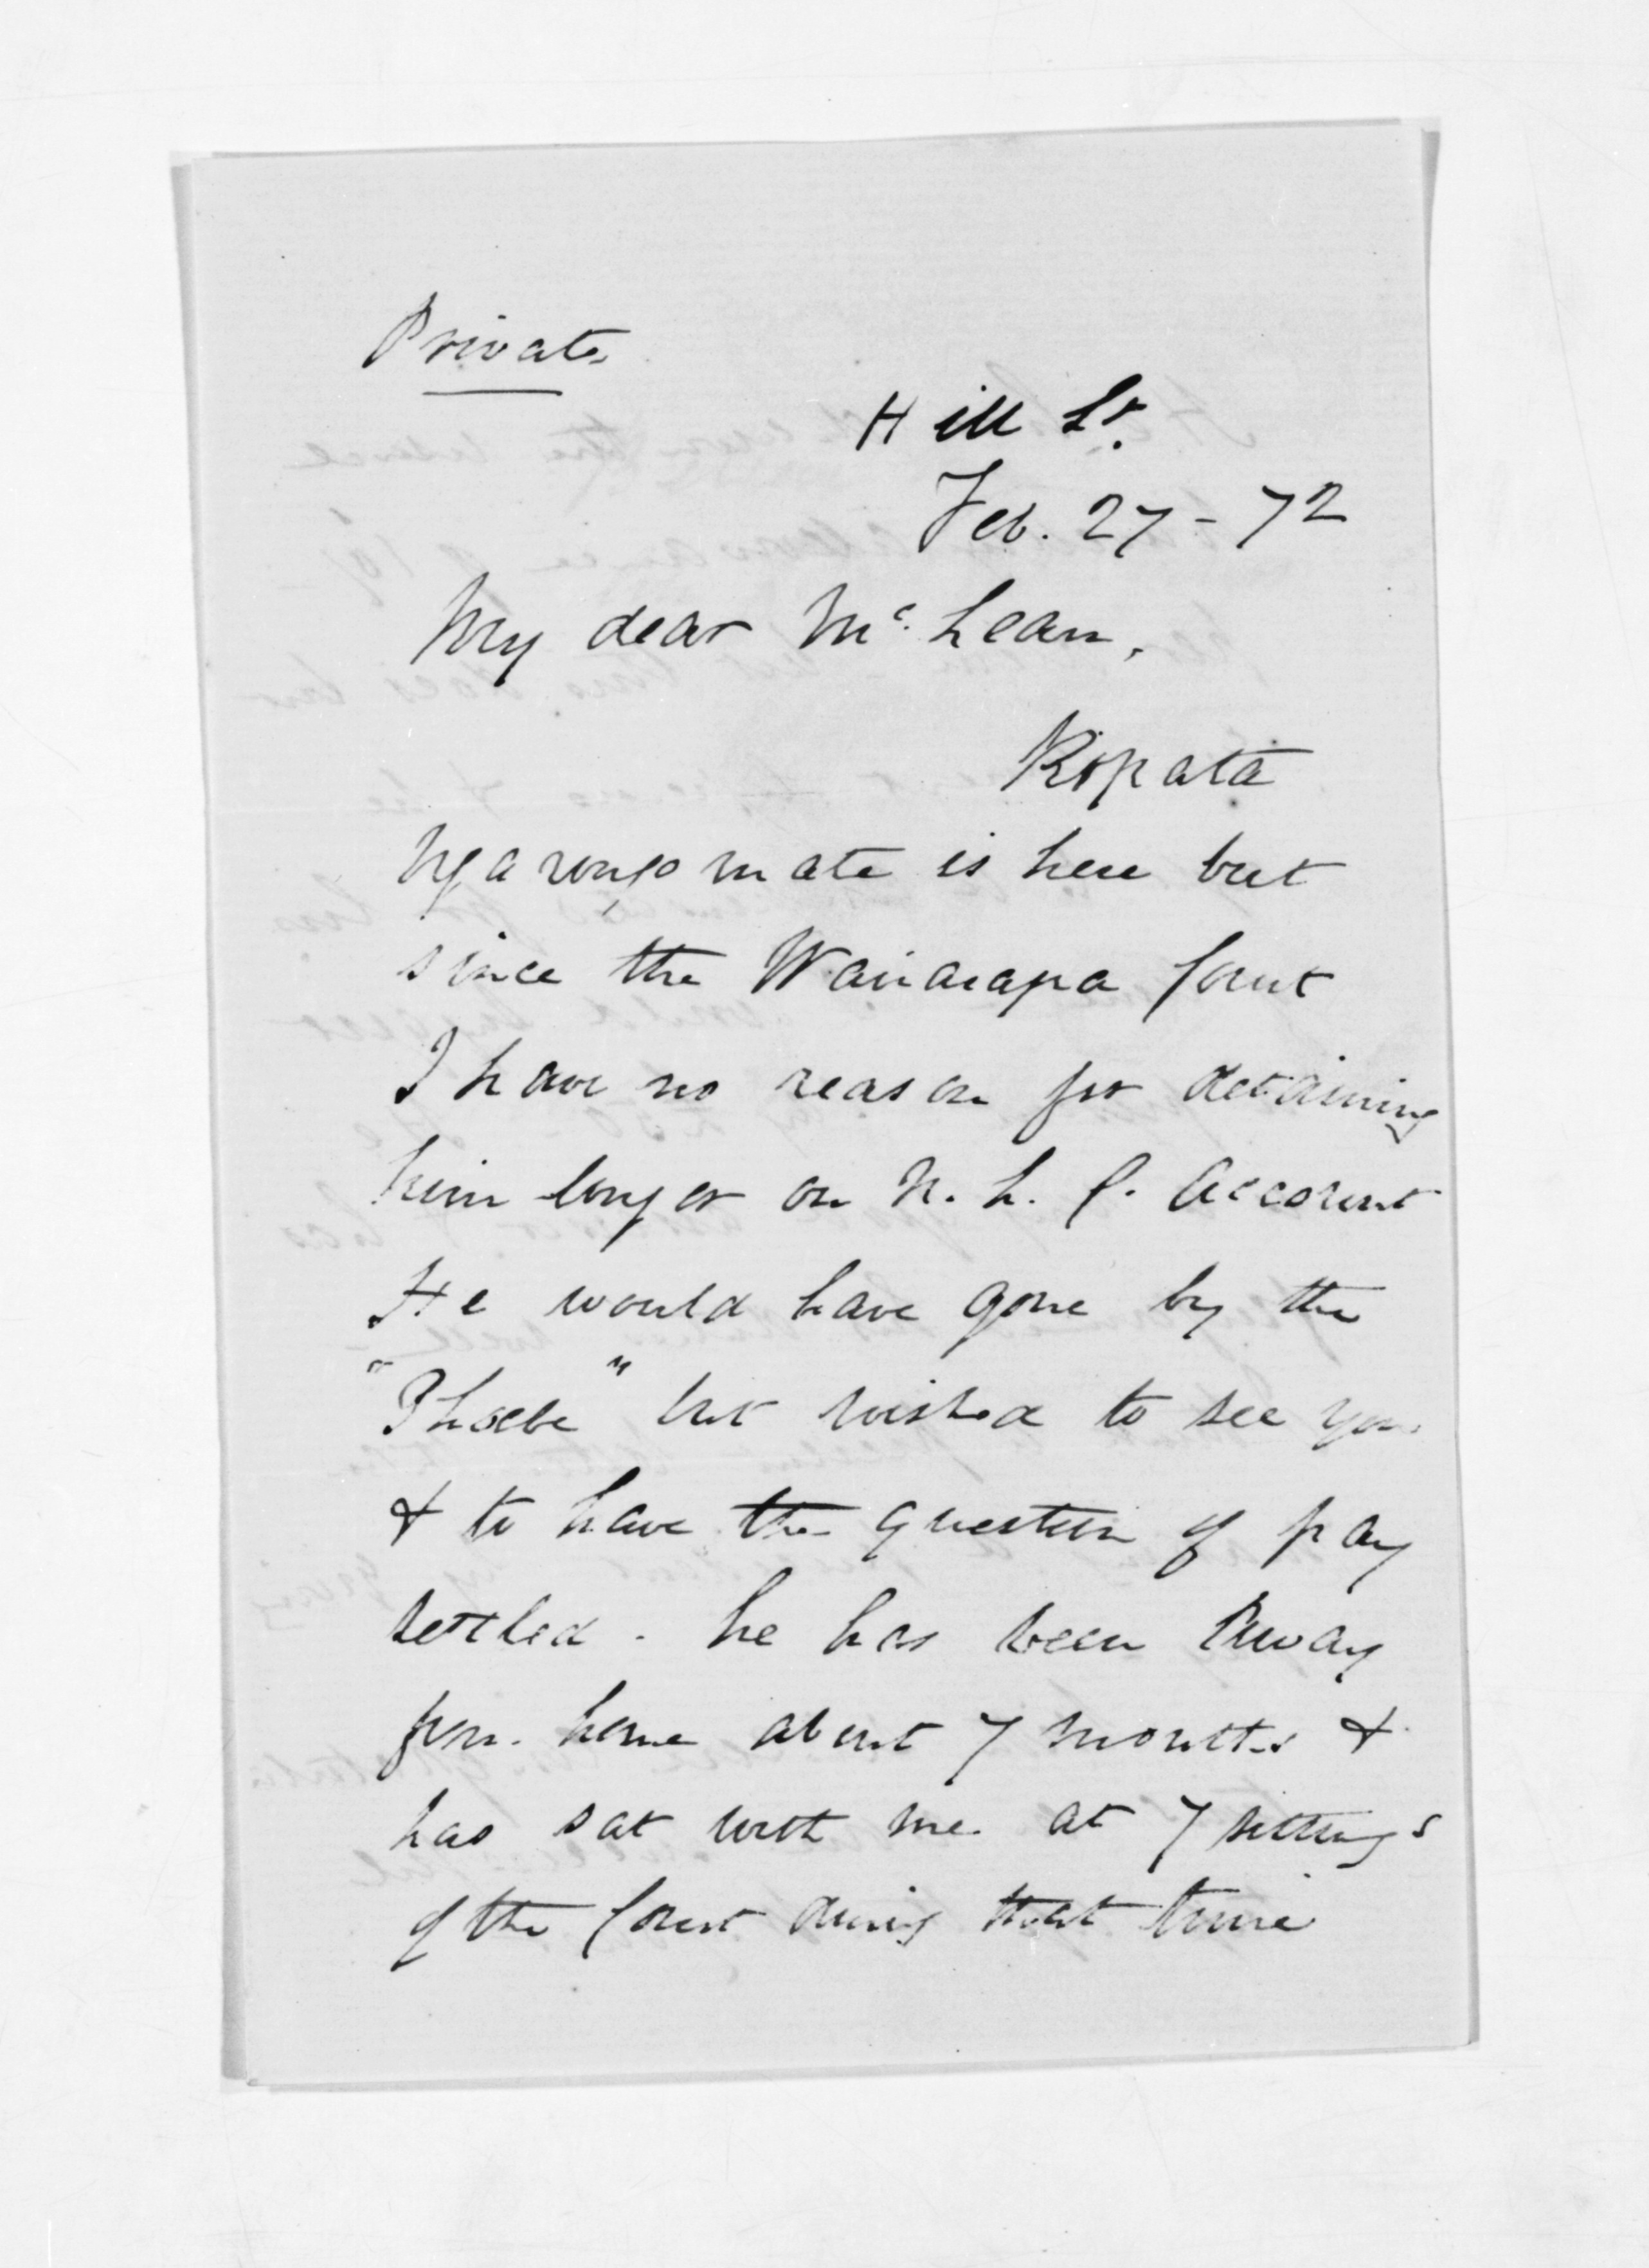 Private
Hill St.
Feb. 27 - 72
My dear McLean,
Ropata
Ngarongomate is here but
since the Wairarapa Court
I have no reason for detaining
him longer on N. L. C. account
He would have gone by the
"Phoebe" but wished to see you
& to have the question of pay
settled. he has been away
from home about 7 months &
has sat with me at 7 sittings
of the Court during that time